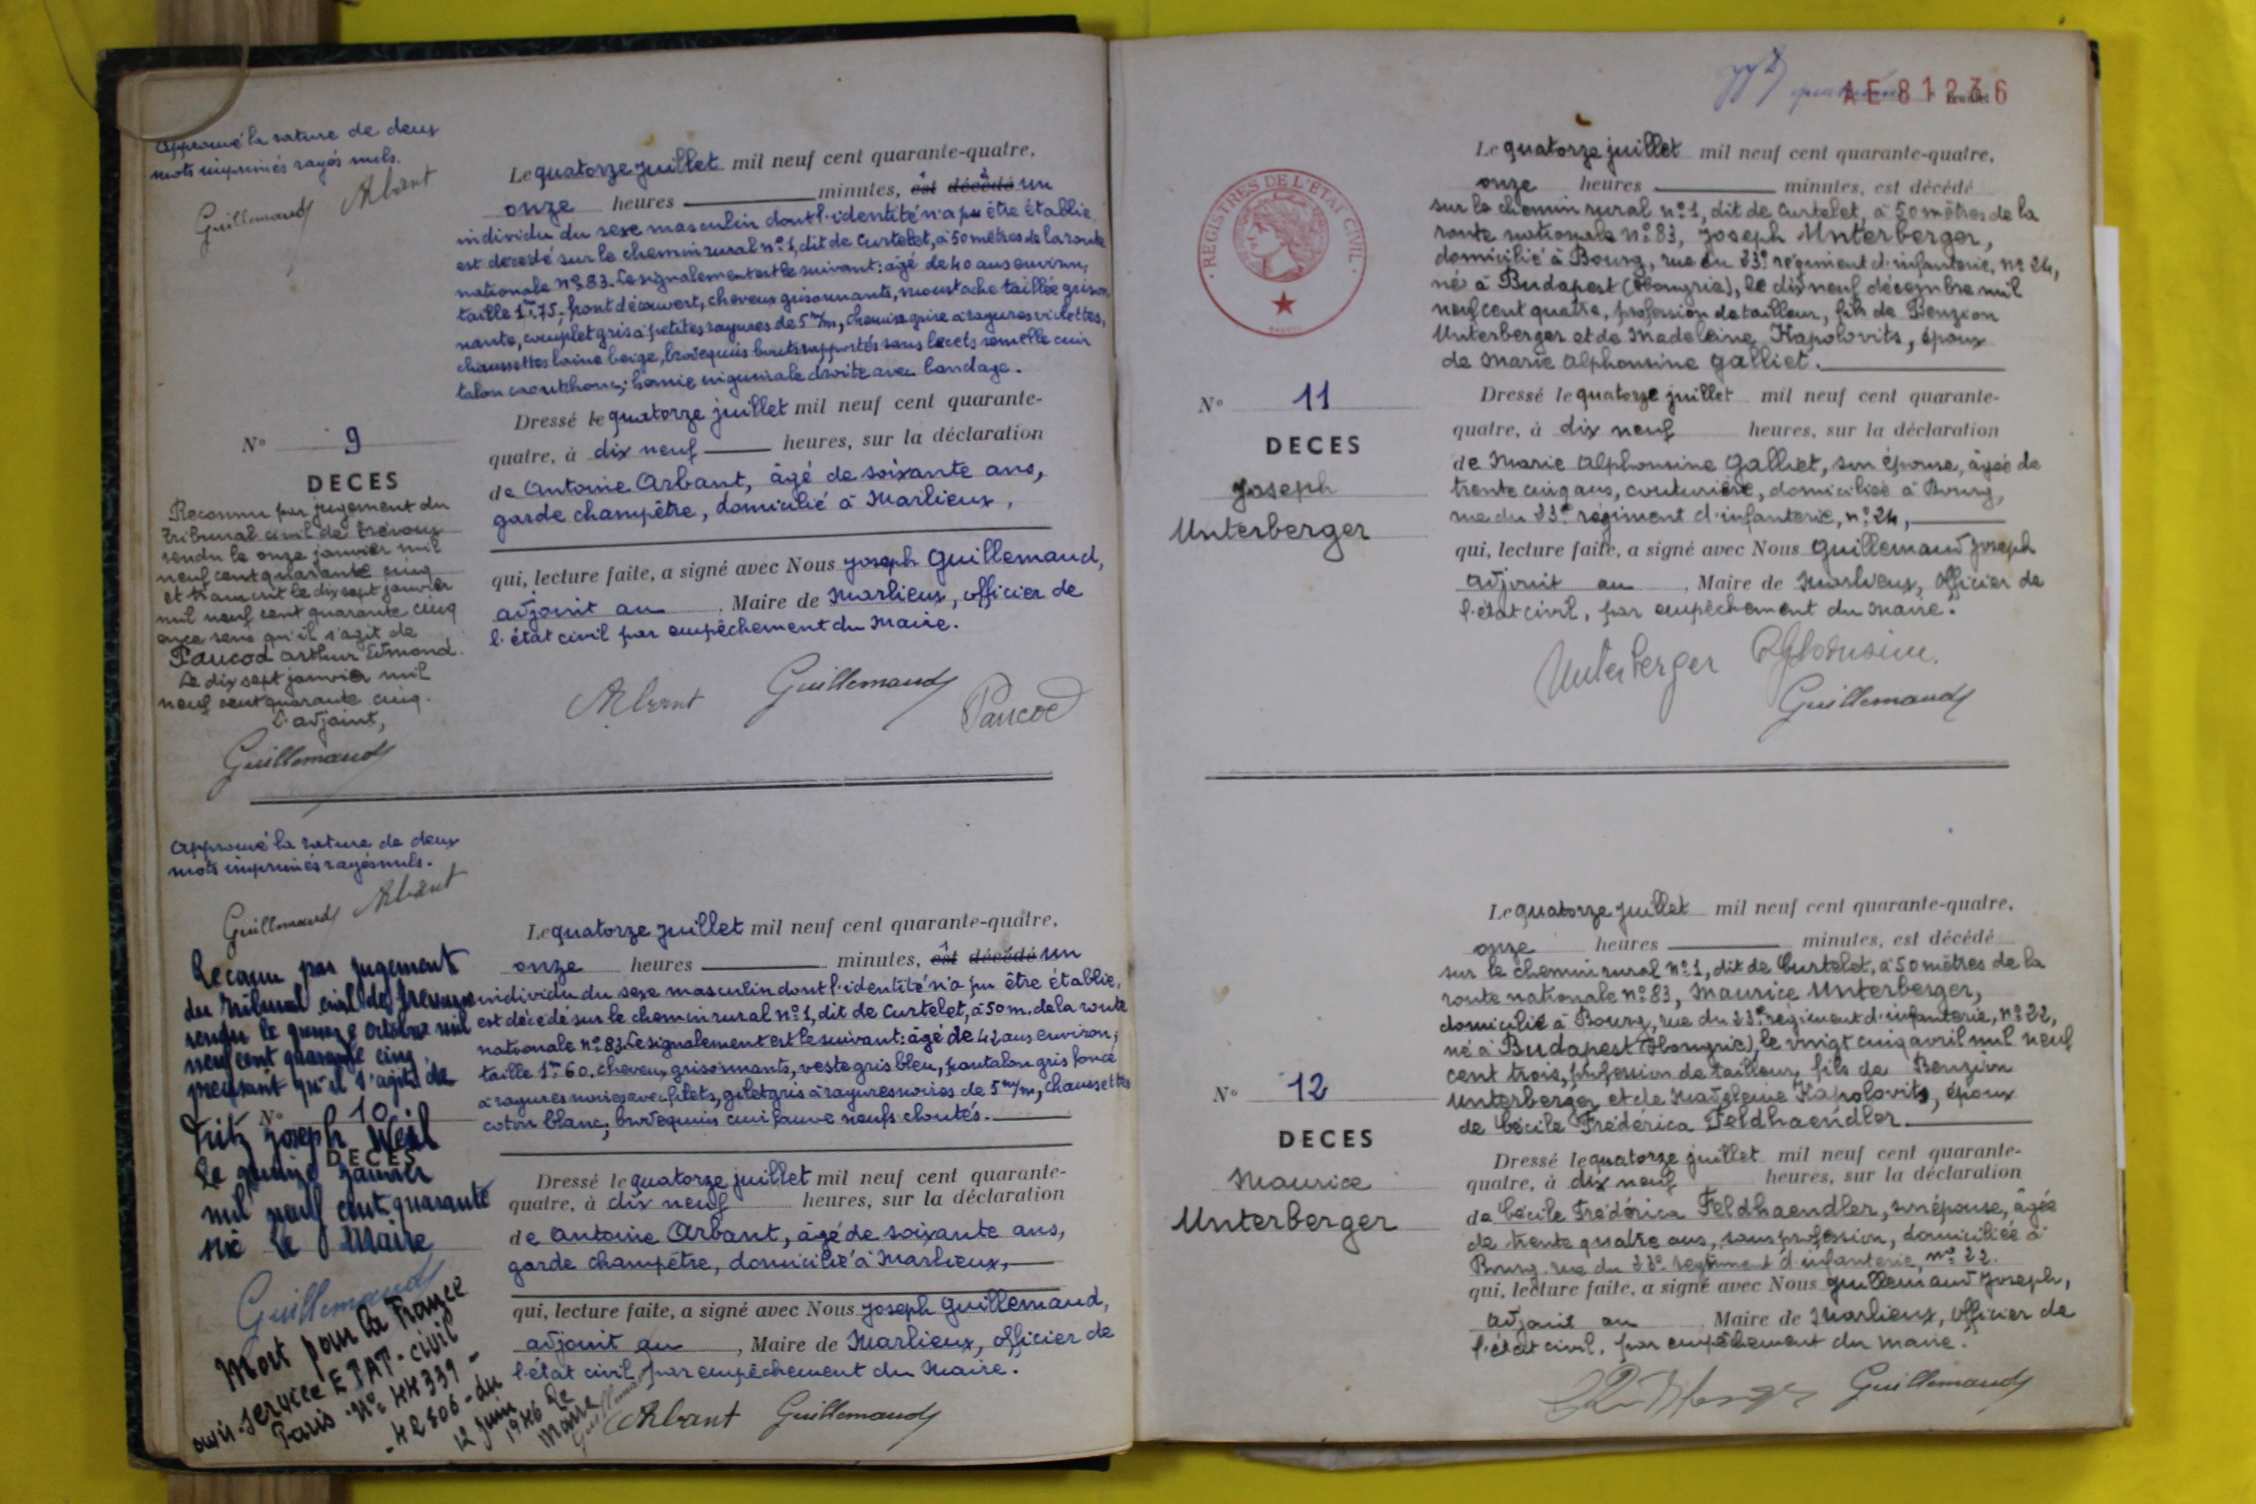 Approuvé la rature de deux
mots imprimés rayés nuls.
Guillemaud Arbant
Le quatorze juillet mil neuf cent quarante-quatre,
onze heures minutes, est décédé un
individu du sexe masculin dont l'identité n'a pu être établie
est décédé sur le chemin rural n°1, dit de Curtelet, à 50 mètres de la route
nationale n°83. Le signalement est le suivant: âgé de 40 ans environ,
taille 1m75, front découvert, cheveux grisonnants, moustache taillée grison
nante, complet gris à petites rayures de 5 m/m, chemise grise à rayures violettes,
chaussettes laine beige, brodequins bouts rapportés sans lacets semelle cuir
talon caoutchouc; hernie inguinale droite avec bandage.
Dressé le quatorze juillet mil neuf cent quarante-
quatre, à dix neuf heures, sur la déclaration
de Antoine Arbant, âgé de soixante ans,
garde champêtre, domicilié à Marlieux,
qui, lecture faite, a signé avec Nous Joseph Guillemaud,
adjoint au , Maire de Marlieux, officier de
l'état civil par empêchement du Maire.
Arbant Guillemaud Paucod
N° 9
DECES
Reconnu par jugement du
tribunal civil de Trévoux
rendu le onze janvier mil
neuf cent quarante cinq
et transcrit le dix sept janvier
mil neuf cent quarante cinq
en ce sens qu'il s'agit de
Paucod Arthur Edmond.
Le dix sept janvier mil
neuf cent quarante cinq.
L'adjoint,
Guillemaud
Approuvé la rature de deux
mots imprimés rayés nuls.
Guillemaud Arbant
Le quatorze juillet mil neuf cent quarante-quatre,
onze heures minutes, est décédé un
individu du sexe masculin dont l'identité n'a pu être établie,
est décédé sur le chemin rural n°1, dit de Curtelet, à 50 m. de la route
nationale n°83. Le signalement est le suivant: âgé de 42 ans environ;
taille 1m60. cheveux grisonnants, veste gris bleu, pantalon gris foncé
à rayures noires avec filets, gilet gris à rayures noires de 5 m/m, chaussettes
coton blanc, brodequins cuir fauve neufs cloutés.
Dressé le quatorze juillet mil neuf cent quarante-
quatre, à dix neuf heures, sur la déclaration
de Antoine Arbant, âgé de soixante ans,
garde champêtre, domicilié à Marlieux,
qui, lecture faite, a signé avec Nous Joseph Guillemaud,
adjoint au , Maire de Marlieux, officier de
l'état civil par empêchement du Maire.
Arbant Guillemaud
Reconnu par jugement
du tribunal civil de Trévoux
rendu le quinze octobre mil
neuf cent quarante cinq
precisant qu'il s'agit de
N° 10
Fritz Joseph Weil
DECES
Le quinze janvier
mil neuf cent quarante
six Le Maire
Guillemaud
Mort pour la France
avis-service ETAT-civil
Paris N° 44339-
-42806-du
12 juin
1946 Le
Maire
Guillemaud
AE 81236
feuillet
REGISTRES DE L'ETAT CIVIL
Le quatorze juillet mil neuf cent quarante-quatre,
onze heures minutes, est décédé
sur le chemin rural n°1, dit de Curtelet, à 50 mètres de la
route nationale n°83, Joseph Unterberger,
domicilié à Bourg, rue du 23e régiment d'infanterie, n° 24,
né à Budapest (Hongrie), le dix neuf décembre mil
neuf cent quatre, profession de tailleur, fils de Benzion
Unterberger et de Madeleine Kapolovits, époux
de Marie Alphonsine Galliet.
N° 11
DECES
Joseph
Unterberger
Dressé le quatorze juillet mil neuf cent quarante-
quatre, à dix neuf heures, sur la déclaration
de Marie Alphonsine Galliet, son épouse, âgée de
trente cinq ans, couturière, domiciliée à Bourg,
rue du 23e régiment d'infanterie, n° 24,
qui, lecture faite, a signé avec Nous Guillemaud Joseph
adjoint au , Maire de Marlieux, officier de
l'état civil, par empêchement du Maire.
Unterberger Alphonsine
Guillemaud
Le quatorze juillet mil neuf cent quarante-quatre,
onze heures minutes, est décédé
sur le chemin rural n°1, dit de Curtelet, à 50 mètres de la
route nationale n°83, Maurice Unterberger,
domicilié à Bourg, rue du 23e régiment d'infanterie, n° 22,
né à Budapest (Hongrie), le vingt cinq avril mil neuf
cent trois, profession de tailleur, fils de Benzion
Unterberger et de Madeleine Kapolovits, époux
de Cécile Frédérica Feldhaendler.
N° 12
DECES
Maurice
Unterberger
Dressé le quatorze juillet mil neuf cent quarante-
quatre, à dix neuf heures, sur la déclaration
de Cécile Frédérica Feldhaendler, son épouse, âgée
de trente quatre ans, sans profession, domiciliée à
Bourg, rue du 23e régiment d'infanterie, n° 22.
qui, lecture faite, a signé avec Nous Guillemaud Joseph,
adjoint au , Maire de Marlieux, officier de
l'état civil, par empêchement du Maire.
Guillemaud